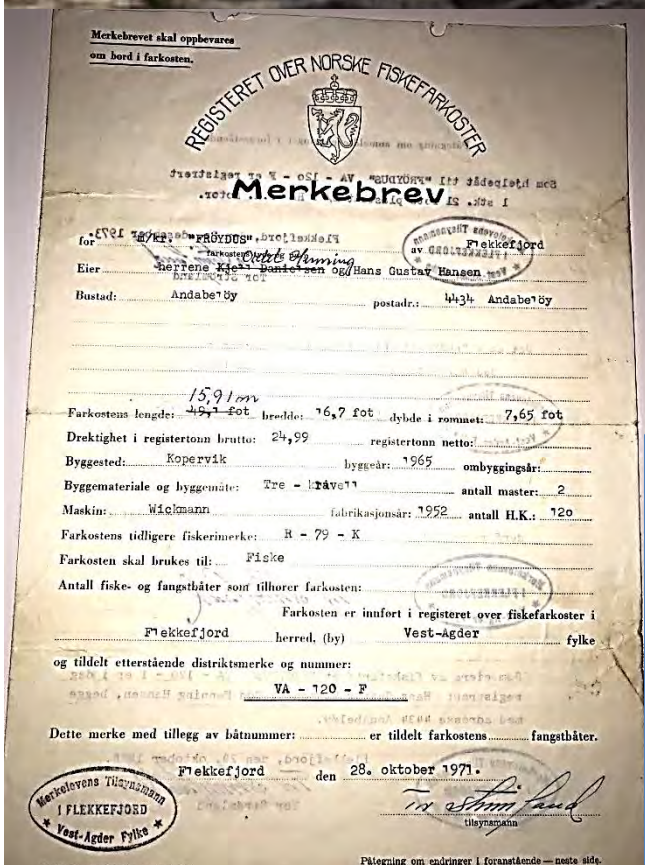 Merkebrevet skal oppbevares
om bord i farkosten.
REGISTERET OVER NORSKE FISKEFARKOSTER
Merkebrev
for M/kr. "FRÖYDUS" av Flekkefjord
farkostens
Henning
Eier herrene Kjell Danielsen og Hans Gustav Hansen
Bustad: Andabeløy postadr.: 4434 Andabeløy
15,91 m
Farkostens lengde: 49,1 fot bredde: 16,7 fot dybde i rommet: 7,65 fot
Drektighet i registertonn brutto: 24,99 registertonn netto:
Byggested: Kopervik byggeår: 1965 ombyggingsår:
Byggemateriale og byggemåte: Tre - kravell antall master: 2
Maskin: Wickmann fabrikasjonsår: 1952 antall H.K.: 120
Farkostens tidligere fiskerimerke: R - 79 - K
Farkosten skal brukes til: Fiske
Antall fiske- og fangstbåter som tilhører farkosten:
Farkosten er innført i registeret over fiskefarkoster i
Flekkefjord herred, (by) Vest-Agder fylke
og tildelt etterstående distriktsmerke og nummer:
VA - 120 - F
Dette merke med tillegg av båtnummer: er tildelt farkostens fangstbåter.
Flekkefjord den 28. oktober 1971.
tilsynsmann
Merkelovens Tilsynsmann
I FLEKKEFJORD
Vest-Agder Fylke
Påtegning om endringer i foranstående — neste side.